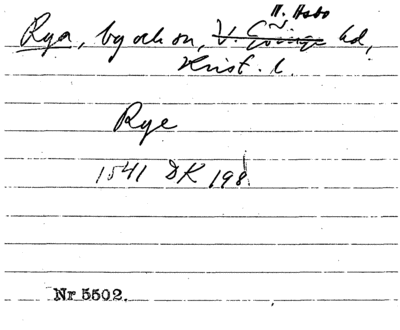 N. Åsbo
Rya, by och sn, V. Göinge hd,
Krist. l.
Rye
1541 DK 198
Nr 5502.